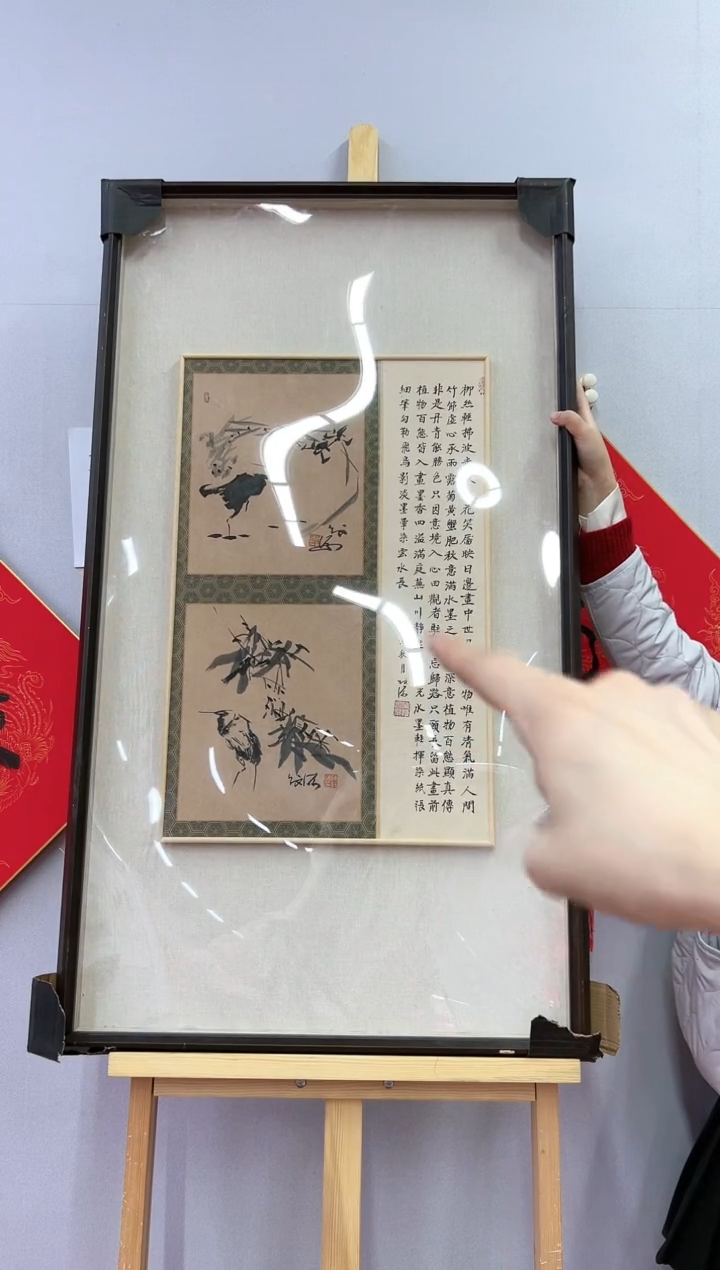 柳絲輕拂波 花笑靨映日邊畫中世 物唯有清氣滿人間
竹節虛心承雨露菊黃蟹肥秋意滿水墨之 深意植物百態顯真傳
非是丹青能勝色只因意境入心田觀者駐 忘歸路只願久留此畫前
植物百態皆入畫墨香四溢滿庭蕪山川靜 光水墨輕揮染紙張
細筆勾勒飛鳥影淡墨暈染雲水長